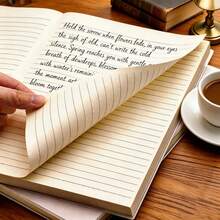 Hold the sorrow when flowers fade, in your eyes
the sigh of old, can't write the cold
silence. Spring reaches you with gentle
breath of dewdrops, blossom
with winter's remain
the moment art
bloom together